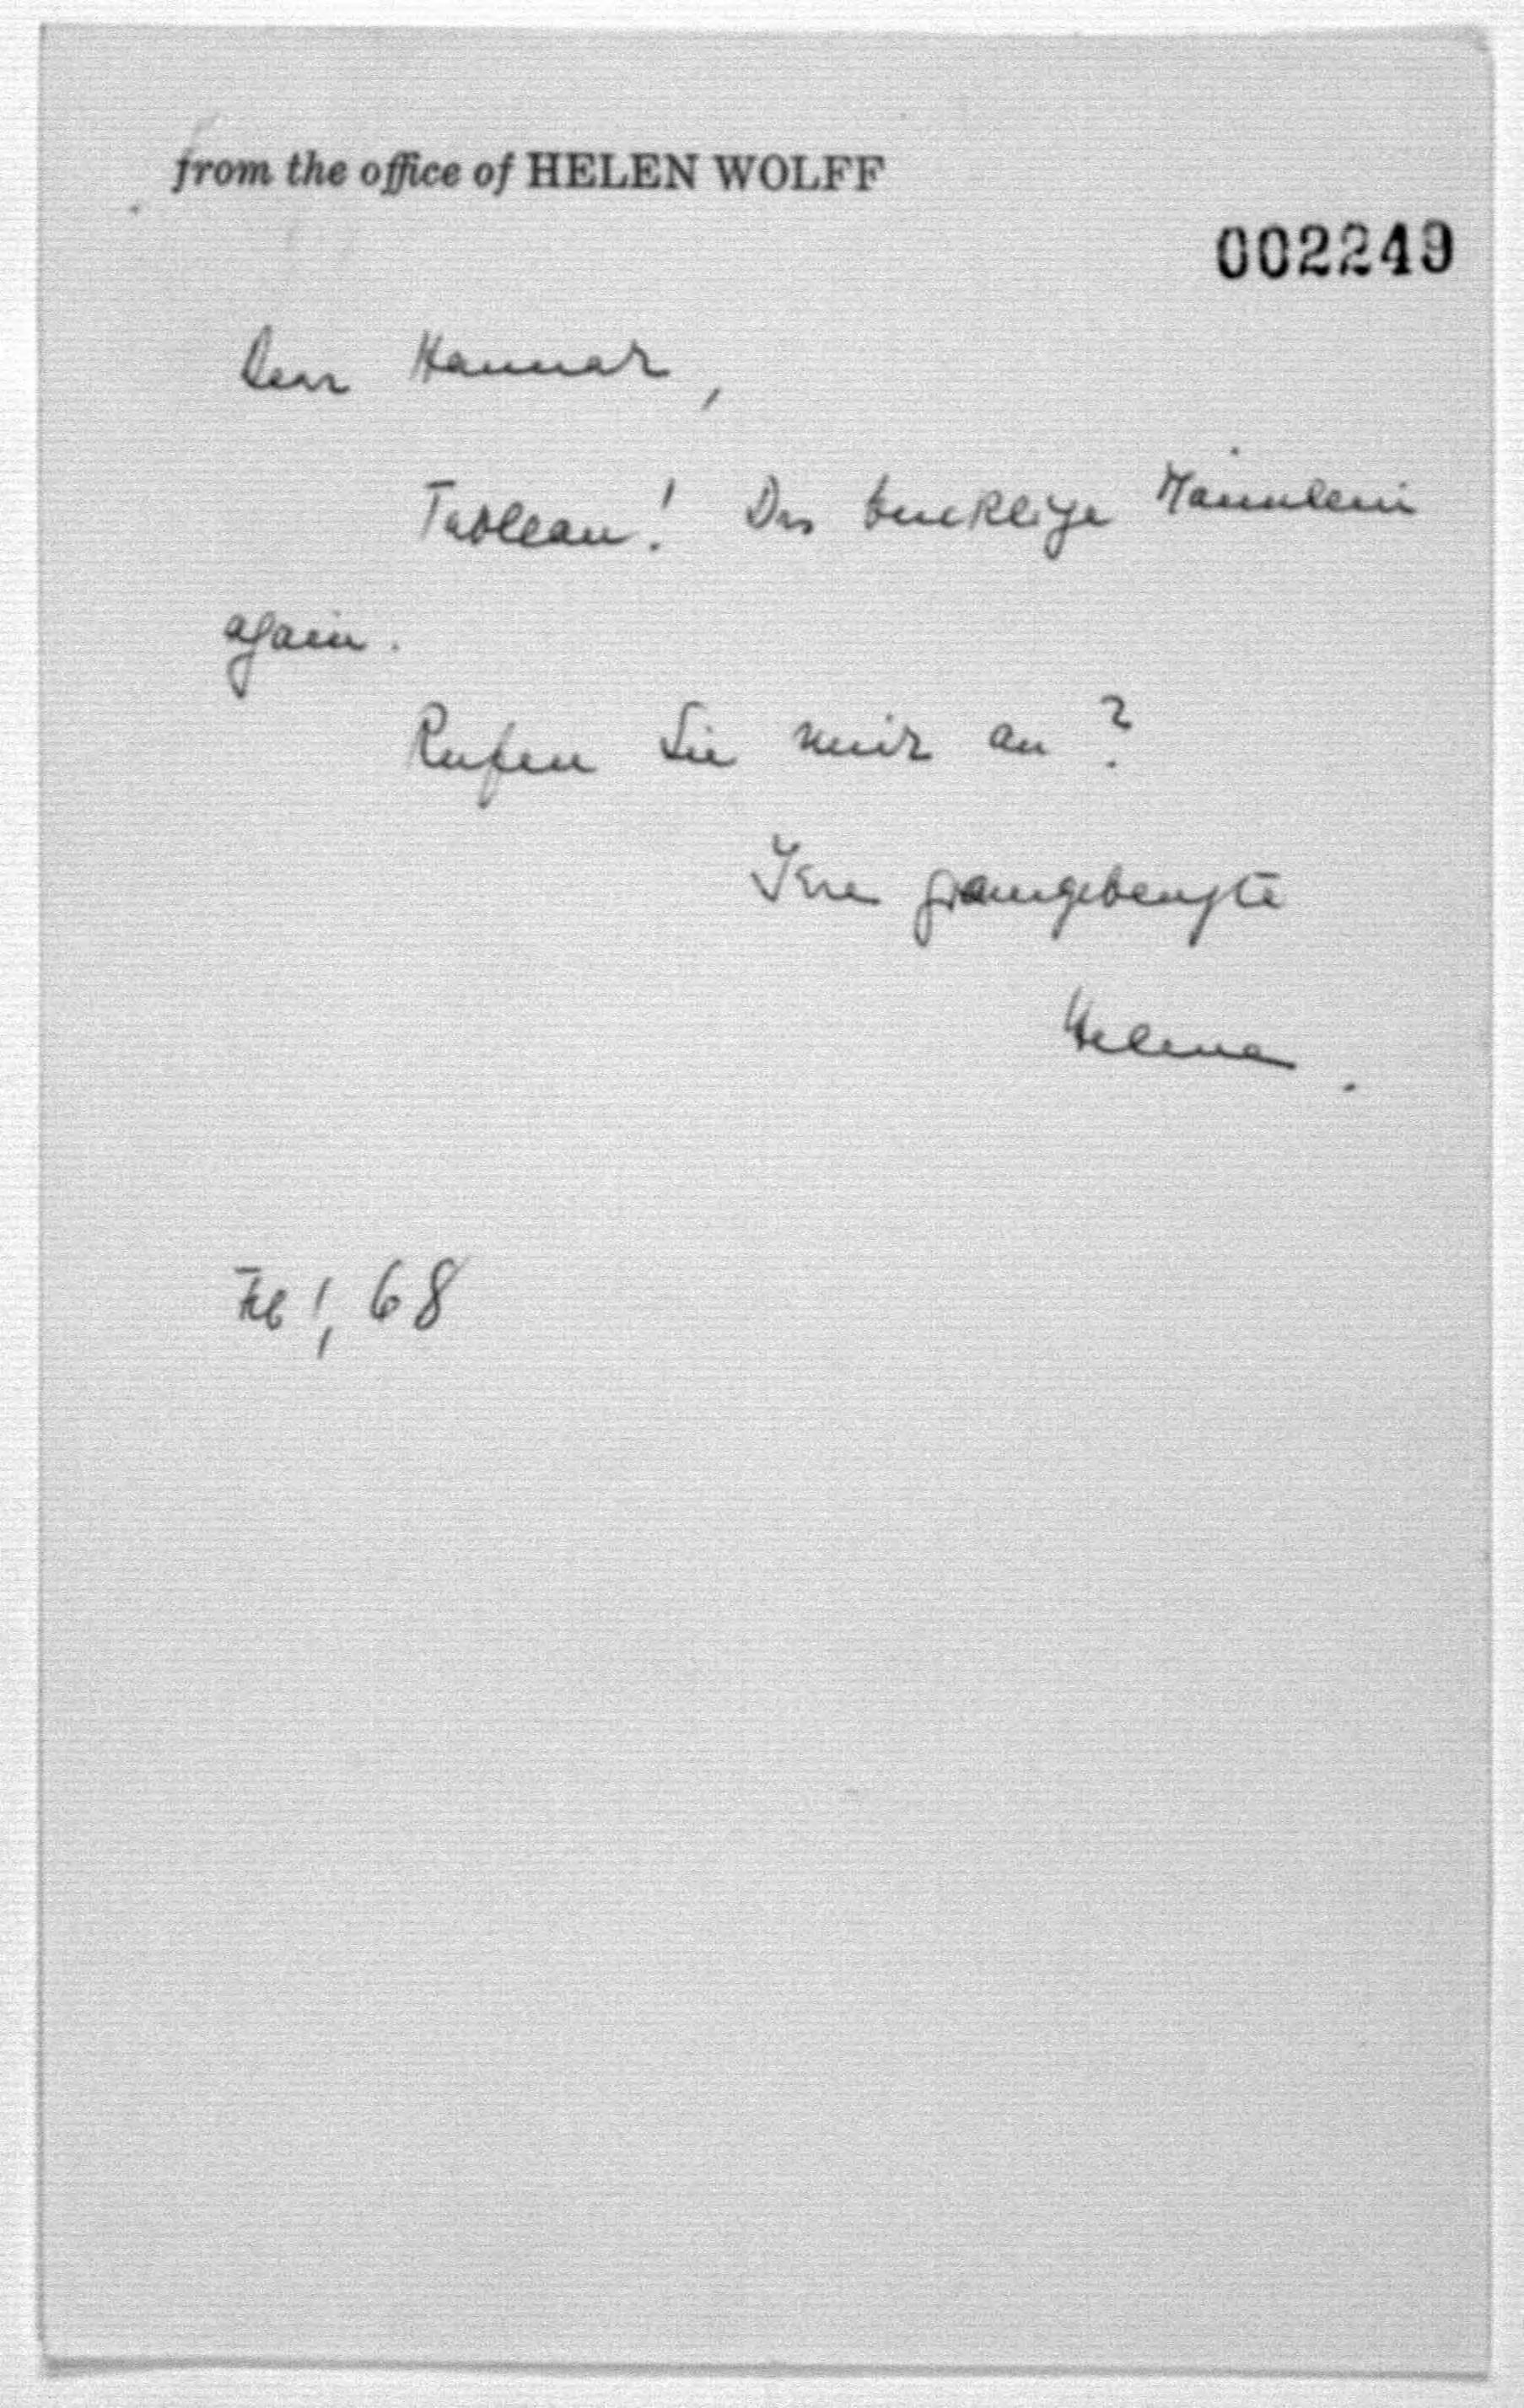 from the office of HELEN WOLFF
002249
Dear Hannah,
Tableau! Das bucklige Männlein
again.
Rufen Sie mich an?
Ihre gramgebeugte
Helene.
Feb 1, 68